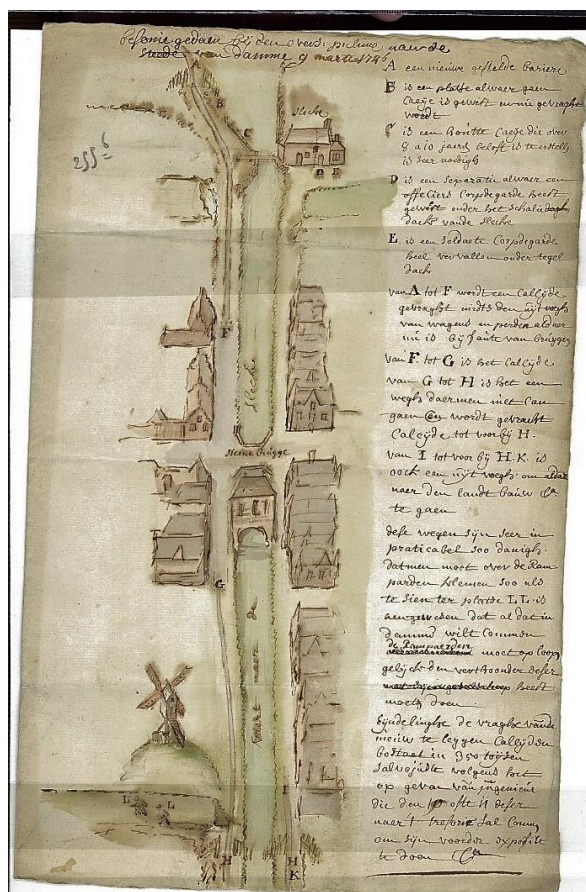 besonie gedaen bij den overs: pulinx van de
Stede van Damme 9 marti 1746
2556
A een nieuwe gestelde bariere
B is een platse alwaer geen
Caeije is geweest en nu gevraght
wordt
C is een houtte Caeije die over
8 a 10 jaers belost is te erstellen
is seer noodigh
D is een separatie alwaer een
officiers Corpdegarde heeft
geweest onder het schalie
dack vande Slechte
E is een soldaete Corpdegarde
heel vervallen onder tegel
dack
van A tot F wordt een Calsijde
gevraght midts den uijt wegh
van wagens en perden aldaer
nu is bij faute van brugge
van F tot G is het Calsijde
van G tot H is het een
wegh daermen niet can
gaen en wordt gevracht
Calsijde tot voor bij H.
van I tot voor bij H.K. is
oock een uijt wegh om
naer den landt bauw &a
te gaen
dese wegen sijn seer in
praticabel soo danigh
datmen moet over de Ram
parden klemen soo als
te sien ter platse LL. is
aengewesen dat al dat in
damme wilt Commen
de Ramparden moet op loopen
gelijck den verthoonder deser
heeft
moets doen
Eijndelinghe de vraghe vande
nieuw te leggen Calsijden
bestaet in 350 toijsen
salvo juste volgens het
op gevan van ingenieur
die den 10 ofte 11 deser
naer 't tresorie sal Comen
om sijn voorder exposite
te doen &a
B
C
A
Slechte
D E
F
Slechte
Steene brugge
G
Vaert naer de
L L
I
H
H
K